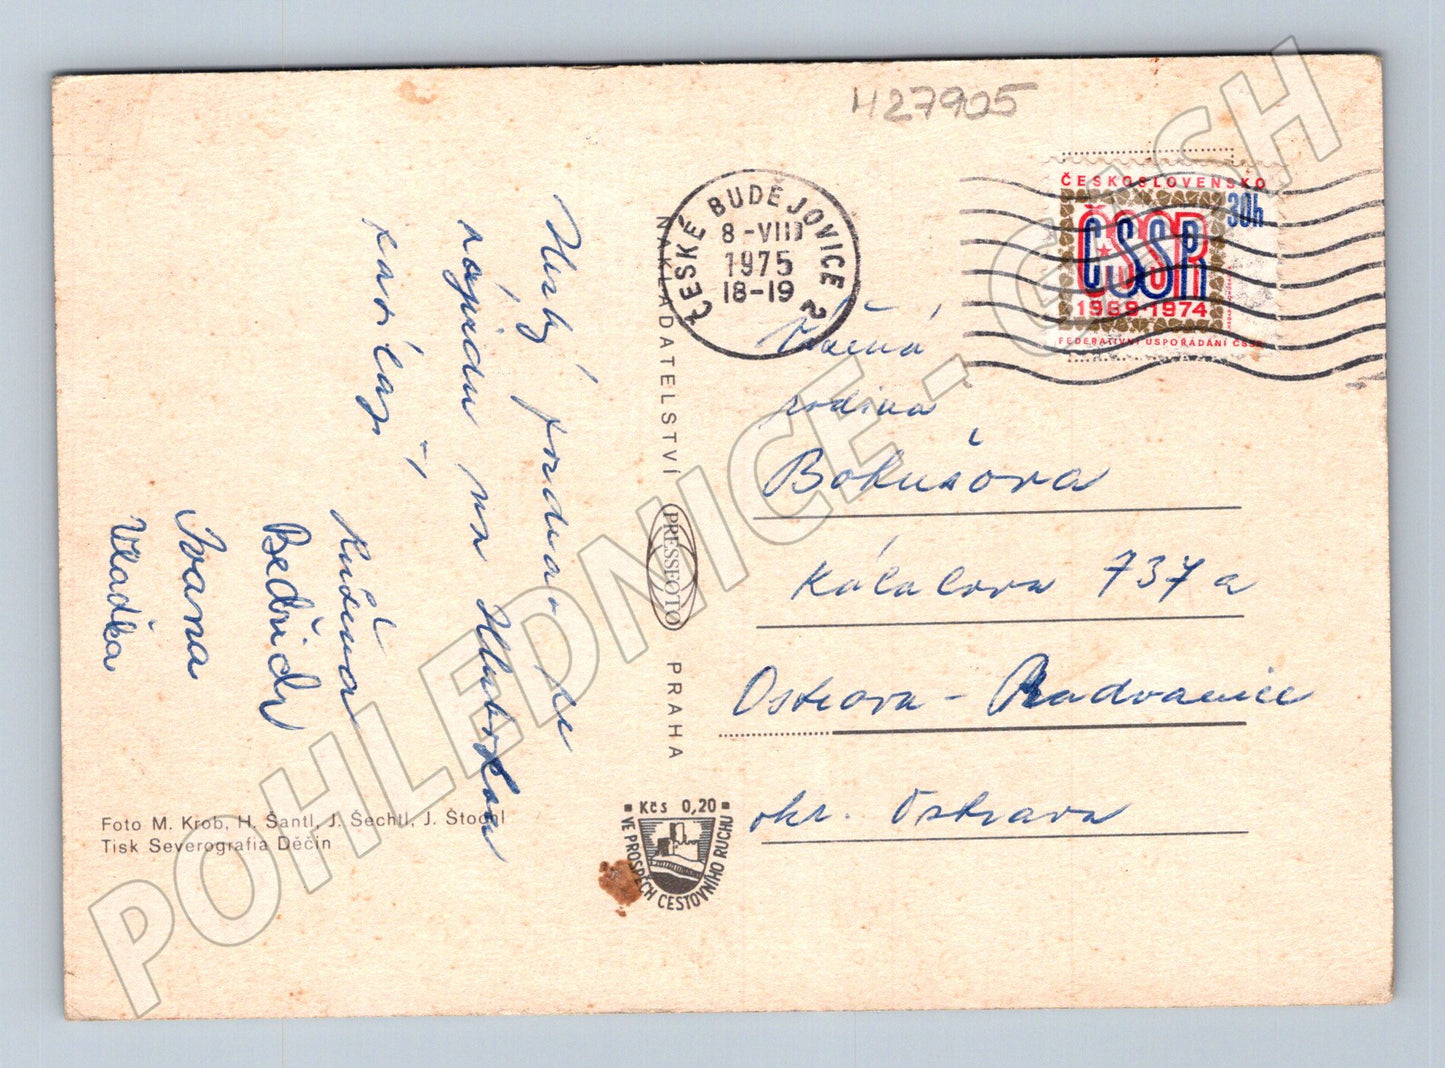 H27905
ČESKOSLOVENSKO
30h
ČSSR
1969-1974
FEDERATIVNÍ USPOŘÁDÁNÍ ČSSR
ČESKÉ BUDĚJOVICE 2
8-VIII
1975
18-19
Vážená
rodina
Bokušova
Kálalova 737a
Ostrava - Radvanice
okr. Ostrava
Hezký pozdrav ze
zájezdu na Hlubokou
zasílají
Růžena
Bedřich
Ivana
Vlaďka
NAKLADATELSTVÍ
PRESSFOTO
PRAHA
Kčs 0,20
VE PROSPĚCH CESTOVNÍHO RUCHU
Foto M. Krob, H. Šantl, J. Šechtl, J. Štochl
Tisk Severografia Děčín
POHLEDNICE - CASH